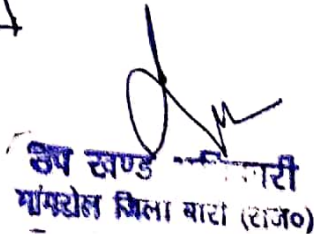 उप खण्ड
मांगरोल जिला बारां (राज०)